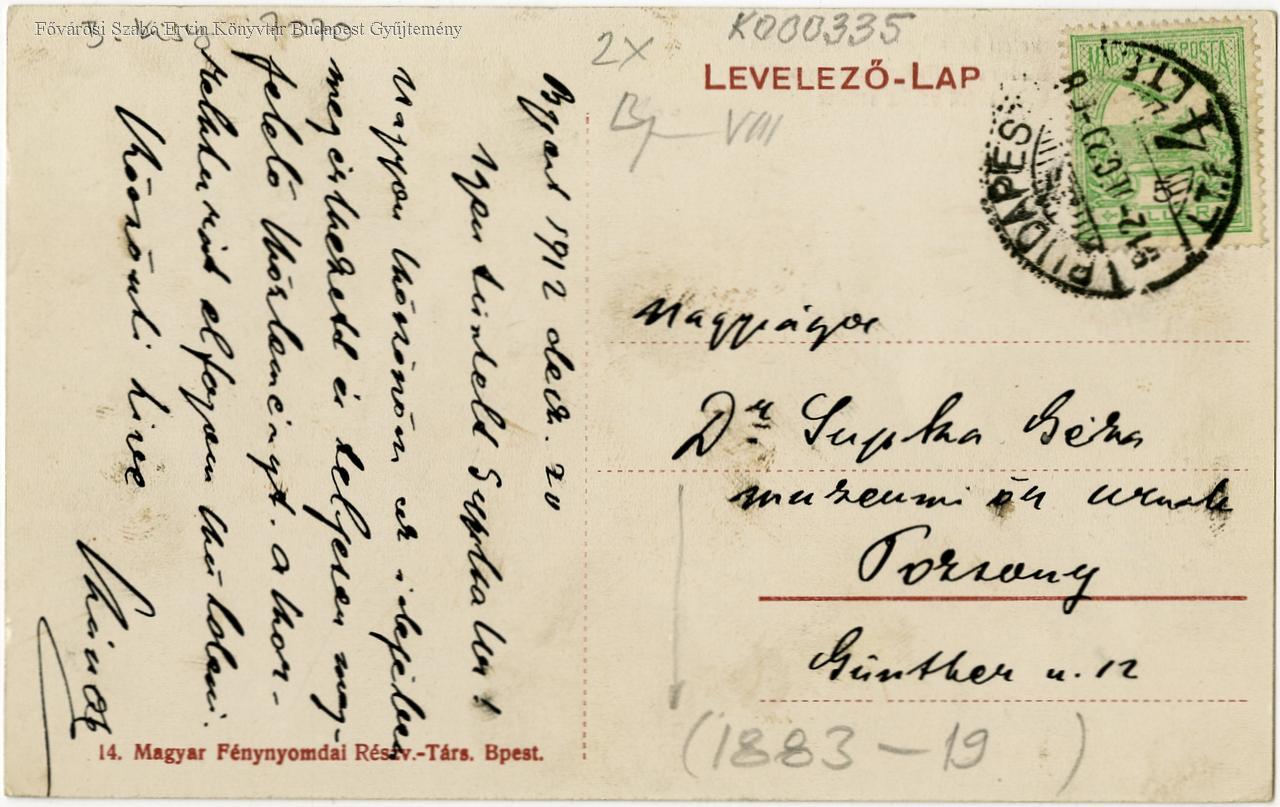 Fővárosi Szabó Ervin Könyvtár Budapest Gyűjtemény
K000335
2X
LEVELEZŐ-LAP
Bp VIII
MAGYAR KIR. POSTA
BUDAPEST
912 DEC 21
Bpest 1912 decz. 20
Igen tisztelt Supka Ur!
Nagyon köszönöm az idejében
megérkezett és teljesen meg-
felelő közleményt. A kor-
rekturát elfogom küldeni.
Köszönti híve
Nagyságos
Dr Supka Géza
muzeumi őr urnak
Pozsony
Günther u. 12
(1883-19 )
14. Magyar Fénynyomdai Részv.-Társ. Bpest.